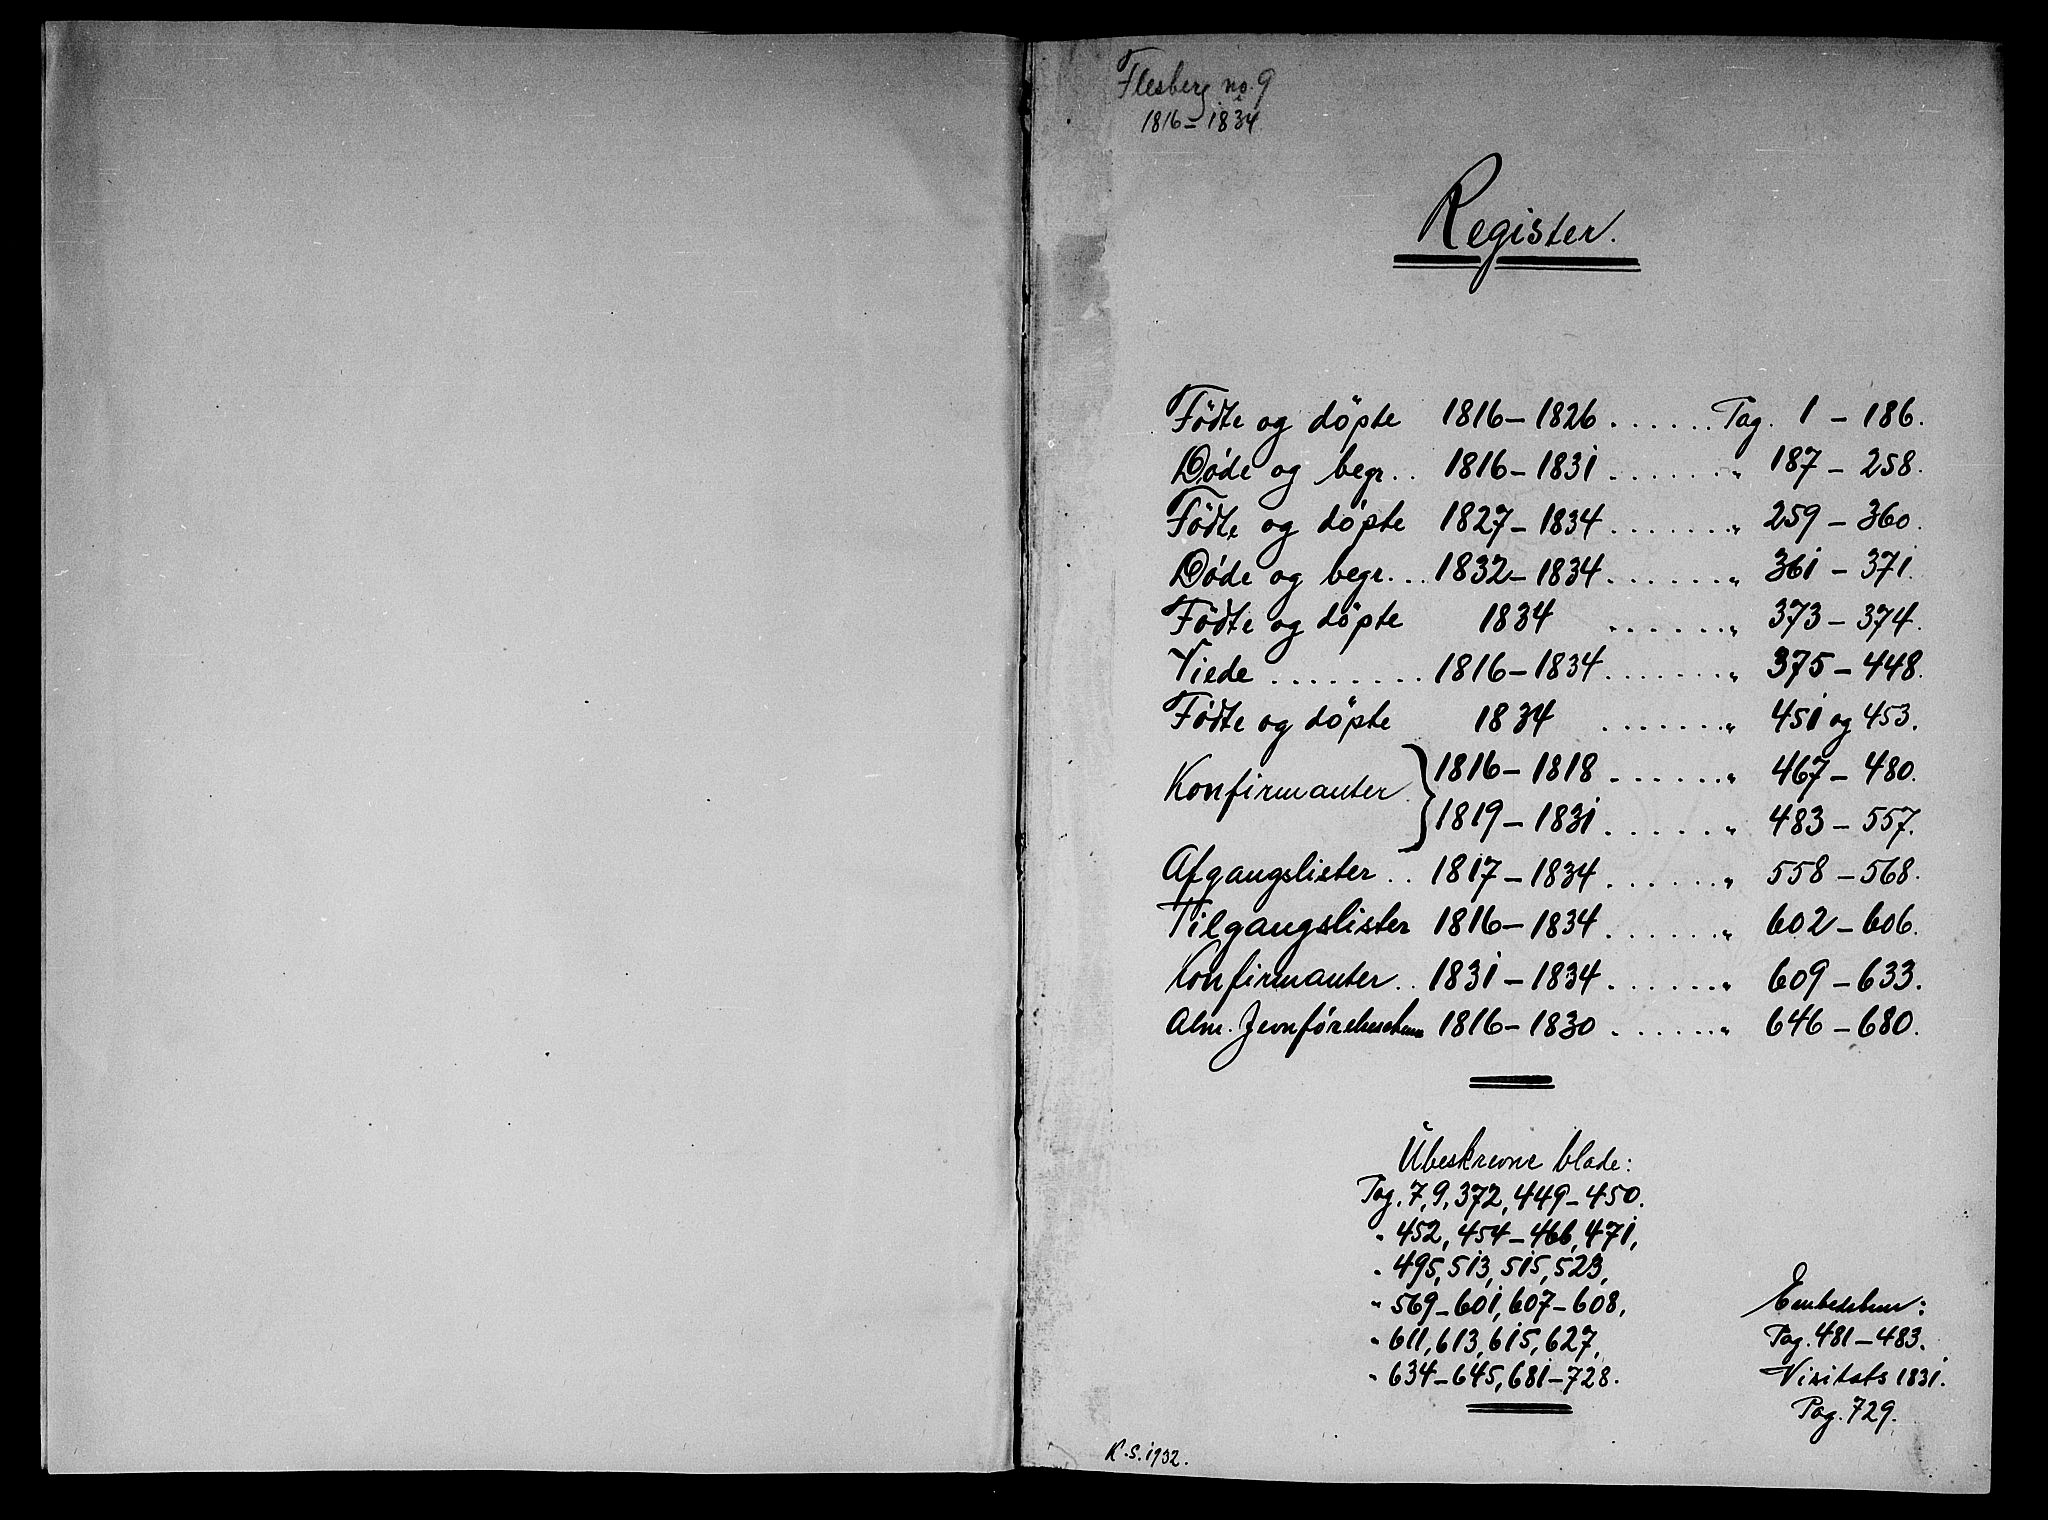 Flesberg no. 9
1816 = 1834
Register.
Födte og döpte 1816 – 1826 . . . . . . Pag. 1 – 186.
Døde og begr. . 1816 – 1831 . . . . . . " 187 – 258.
Födte og döpte 1827 – 1834 . . . . . . " 259 – 360.
Døde og begr. . . 1832 – 1834 . . . . . . " 361 – 371.
Födte og döpte 1834 . . . . . . " 373 – 374.
Viede . . . . . . . . 1816 – 1834 . . . . . . " 375 – 448.
Födte og döpte 1834 . . . . . . " 451 og 453.
Konfirmanter } 1816 – 1818 . . . . . . " 467 – 480.
1819 – 1831 . . . . . . " 483 – 557.
Afgangslister . . 1817 – 1834 . . . . . . " 558 – 568.
Tilgangslister 1816 – 1834 . . . . . . " 602 – 606.
Konfirmanter . . 1831 – 1834 . . . . . . " 609 – 633.
Alm. 1816 – 1830 . . . . . . " 646 – 680.
Ubeskrevne blade:
Pag. 7, 9, 372, 449 – 450.
" 452, 454 – 466, 471,
" 495, 513, 515, 523,
" 569 – 601, 607 – 608,
" 611, 613, 615, 627,
" 634 – 645, 681 – 728.
Pag. 481 – 483.
Visitats 1831.
Pag. 729.
K. S. 1932.